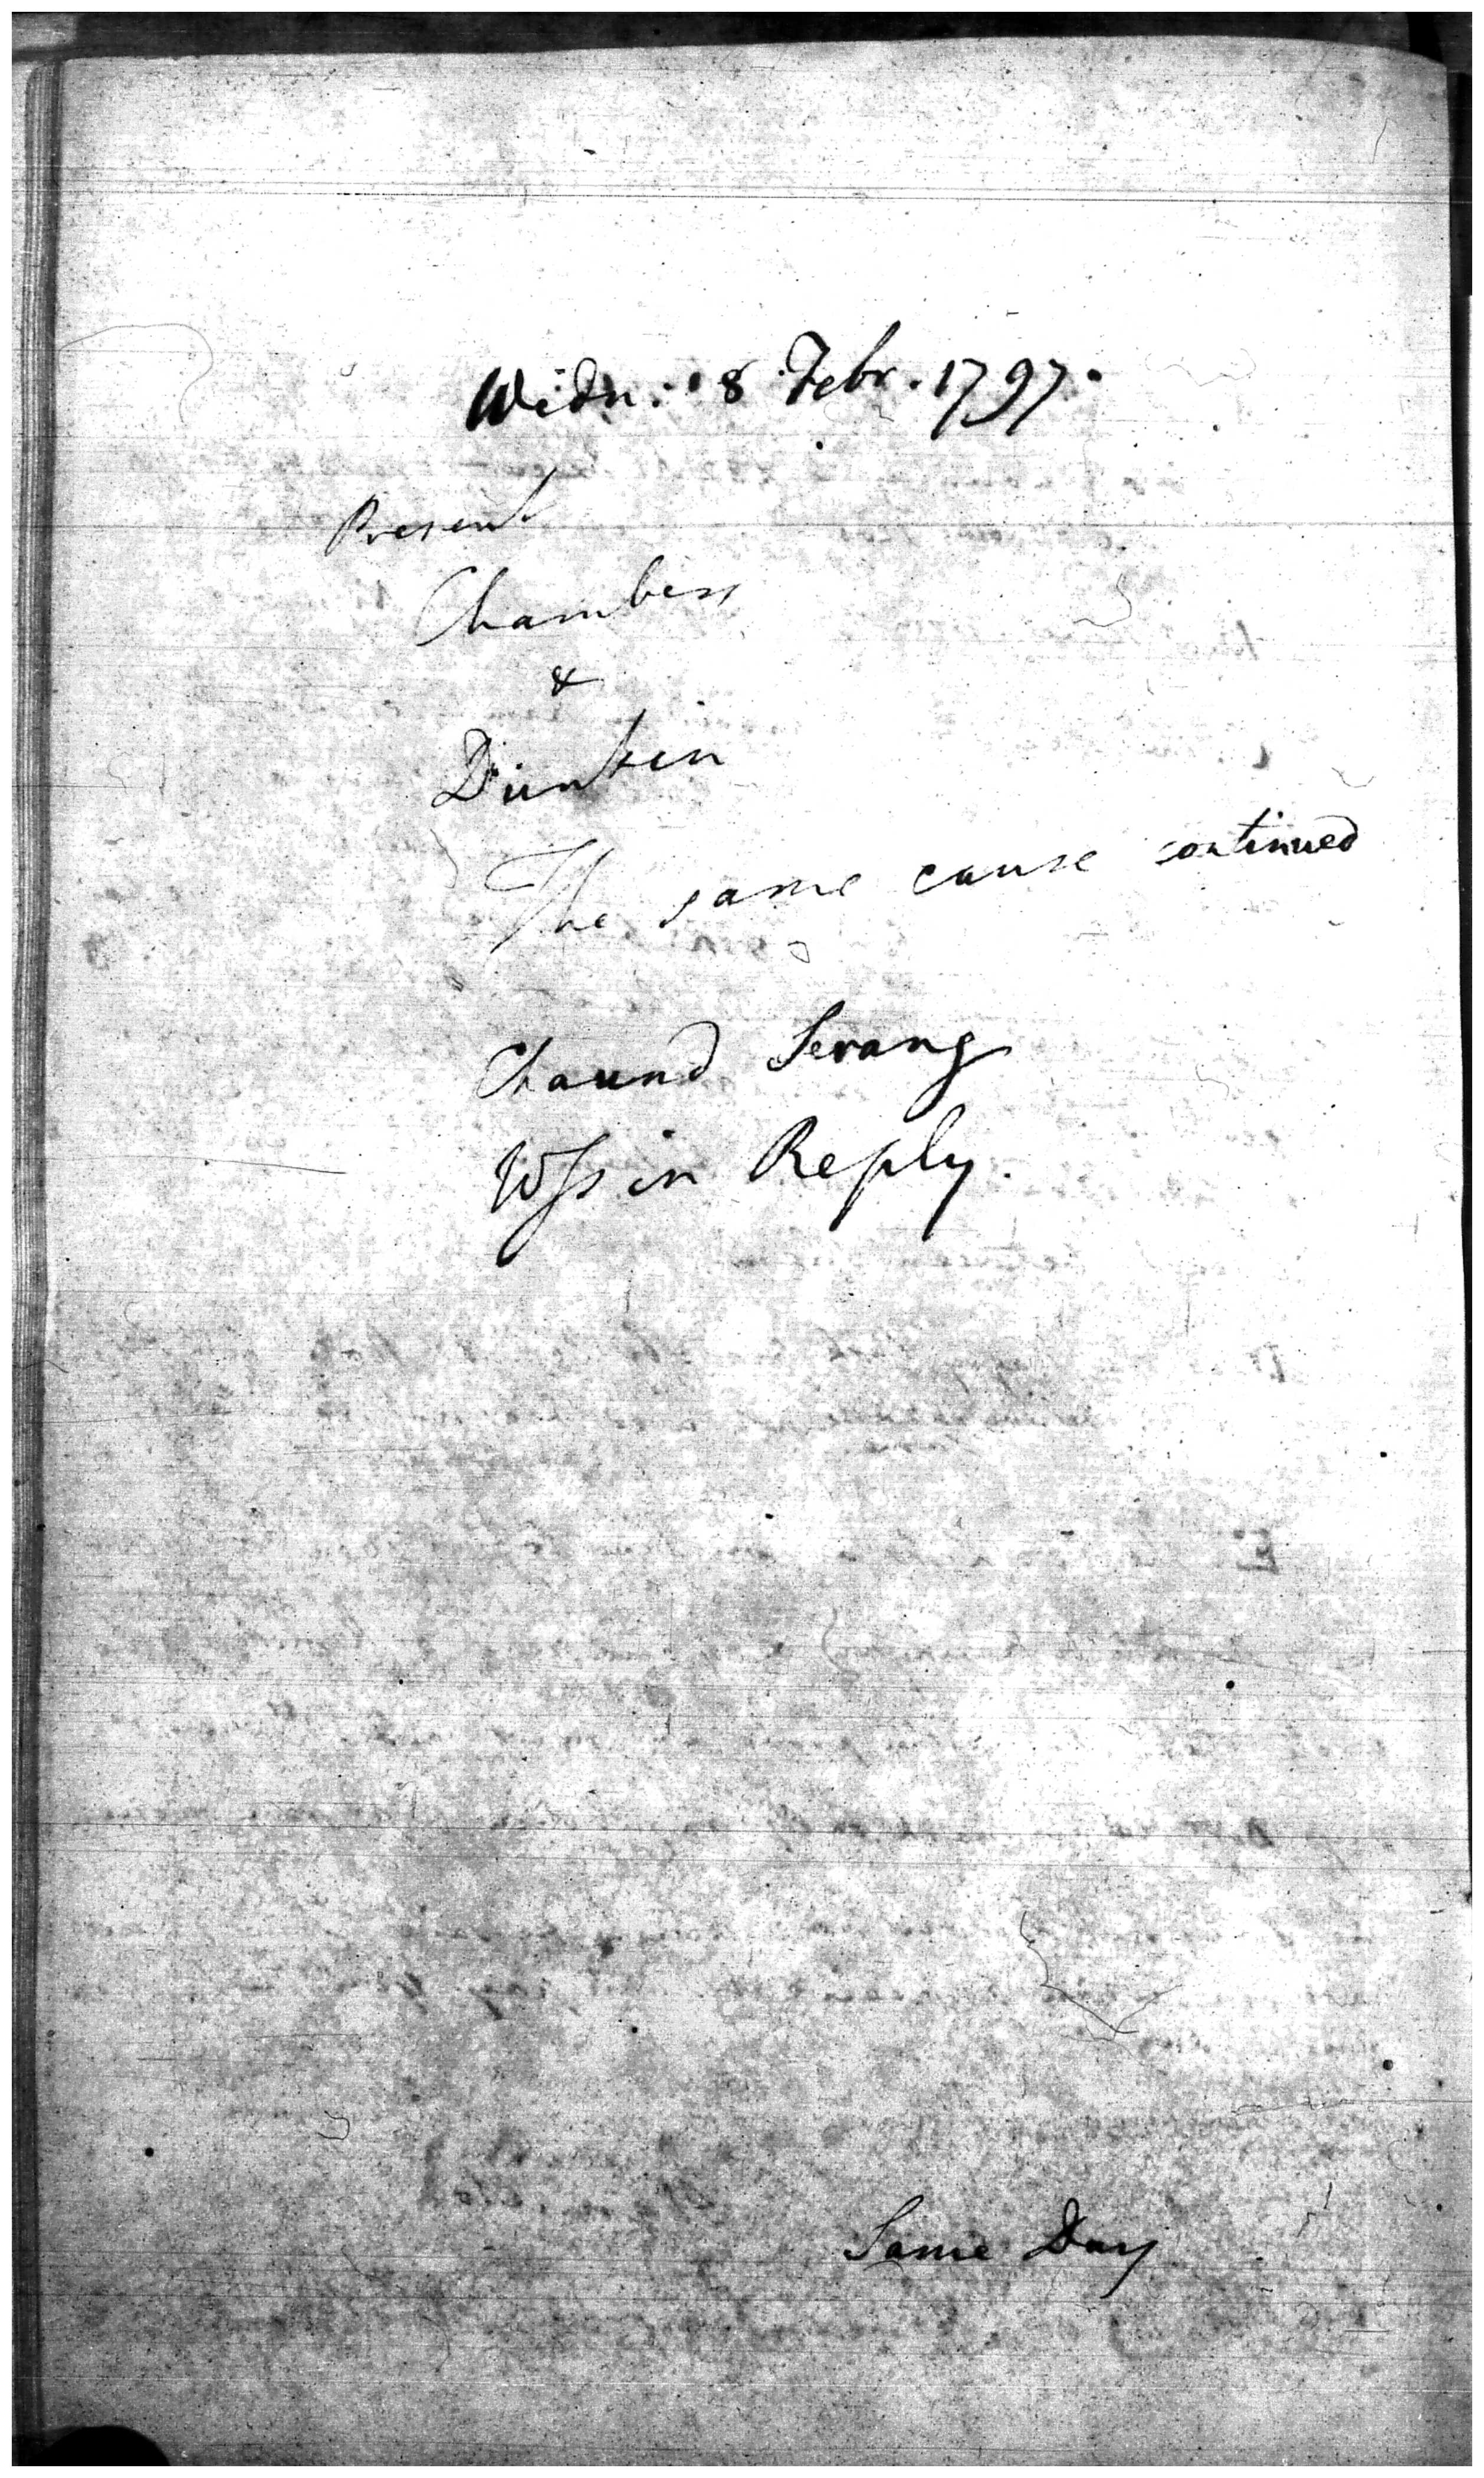 Wedn: 8 Febr. 1797.
Present
Chambers
&
Dunkin
The same cause continued
Chaund Serang
Wss in Reply.
Same Day